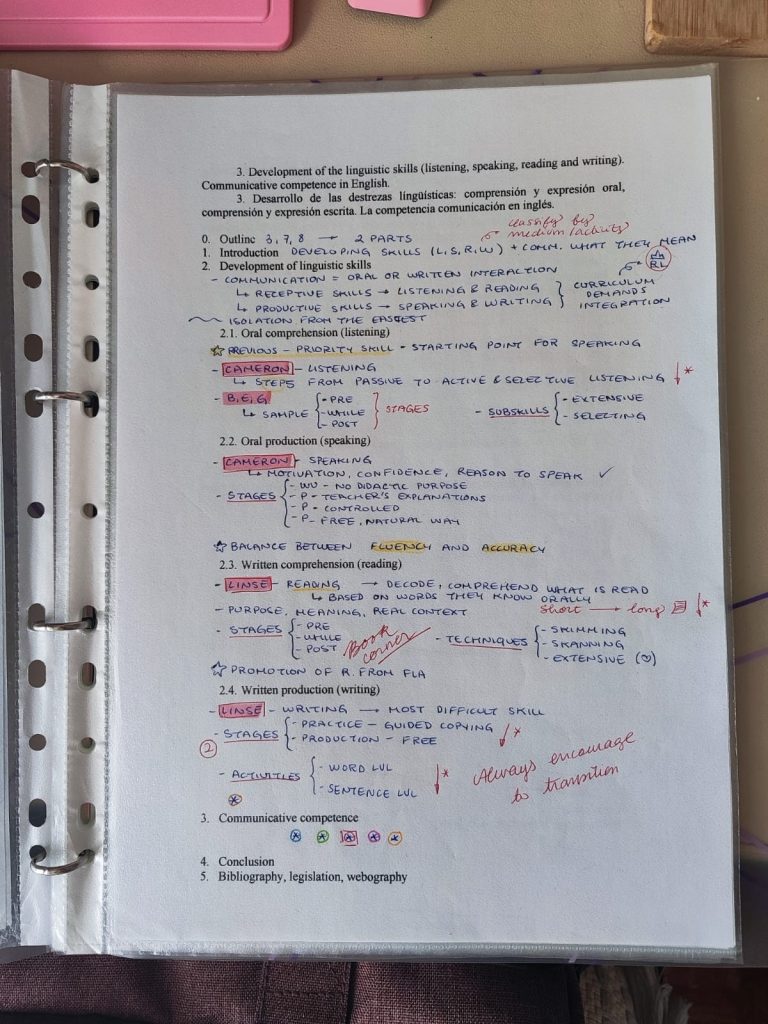 3. Development of the linguistic skills (listening, speaking, reading and writing).
Communicative competence in English.
3. Desarrollo de las destrezas lingüísticas: comprensión y expresión oral,
comprensión y expresión escrita. La competencia comunicación en inglés.
classify by
medium/activity
0. Outline 3, 7, 8 → 2 PARTS
1. Introduction DEVELOPING SKILLS (L, S, R, W) + COMM. WHAT THEY MEAN
2. Development of linguistic skills
RL
- COMMUNICATION = ORAL OR WRITTEN INTERACTION
↳ RECEPTIVE SKILLS → LISTENING & READING
↳ PRODUCTIVE SKILLS → SPEAKING & WRITING
CURRICULUM
DEMANDS
INTEGRATION
ISOLATION FROM THE EASIEST
2.1. Oral comprehension (listening)
☆ PREVIOUS - PRIORITY SKILL - STARTING POINT FOR SPEAKING
- CAMERON - LISTENING
↳ STEPS FROM PASSIVE TO ACTIVE & SELECTIVE LISTENING ↓*
- B, E, G
↳ SAMPLE { - PRE
- WHILE
- POST } STAGES
- SUBSKILLS { - EXTENSIVE
- SELECTING
2.2. Oral production (speaking)
- CAMERON - SPEAKING
↳ MOTIVATION, CONFIDENCE, REASON TO SPEAK ✓
- STAGES { - WU - NO DIDACTIC PURPOSE
- P - TEACHER'S EXPLANATIONS
- P - CONTROLLED
- P - FREE, NATURAL WAY
☆ BALANCE BETWEEN FLUENCY AND ACCURACY
2.3. Written comprehension (reading)
- LINSE - READING → DECODE, COMPREHEND WHAT IS READ
↳ BASED ON WORDS THEY KNOW ORALLY
- PURPOSE, MEANING, REAL CONTEXT
Short → long ↓*
- STAGES { - PRE
- WHILE
- POST
Book
corner
- TECHNIQUES { - SKIMMING
- SKANNING
- EXTENSIVE (♡)
☆ PROMOTION OF R. FROM FLA
2.4. Written production (writing)
- LINSE - WRITING → MOST DIFFICULT SKILL
② - STAGES { - PRACTICE - GUIDED COPYING
- PRODUCTION - FREE ↓*
- ACTIVITIES { - WORD LVL
- SENTENCE LVL ↓*
Always encourage
to transition
3. Communicative competence
4. Conclusion
5. Bibliography, legislation, webography